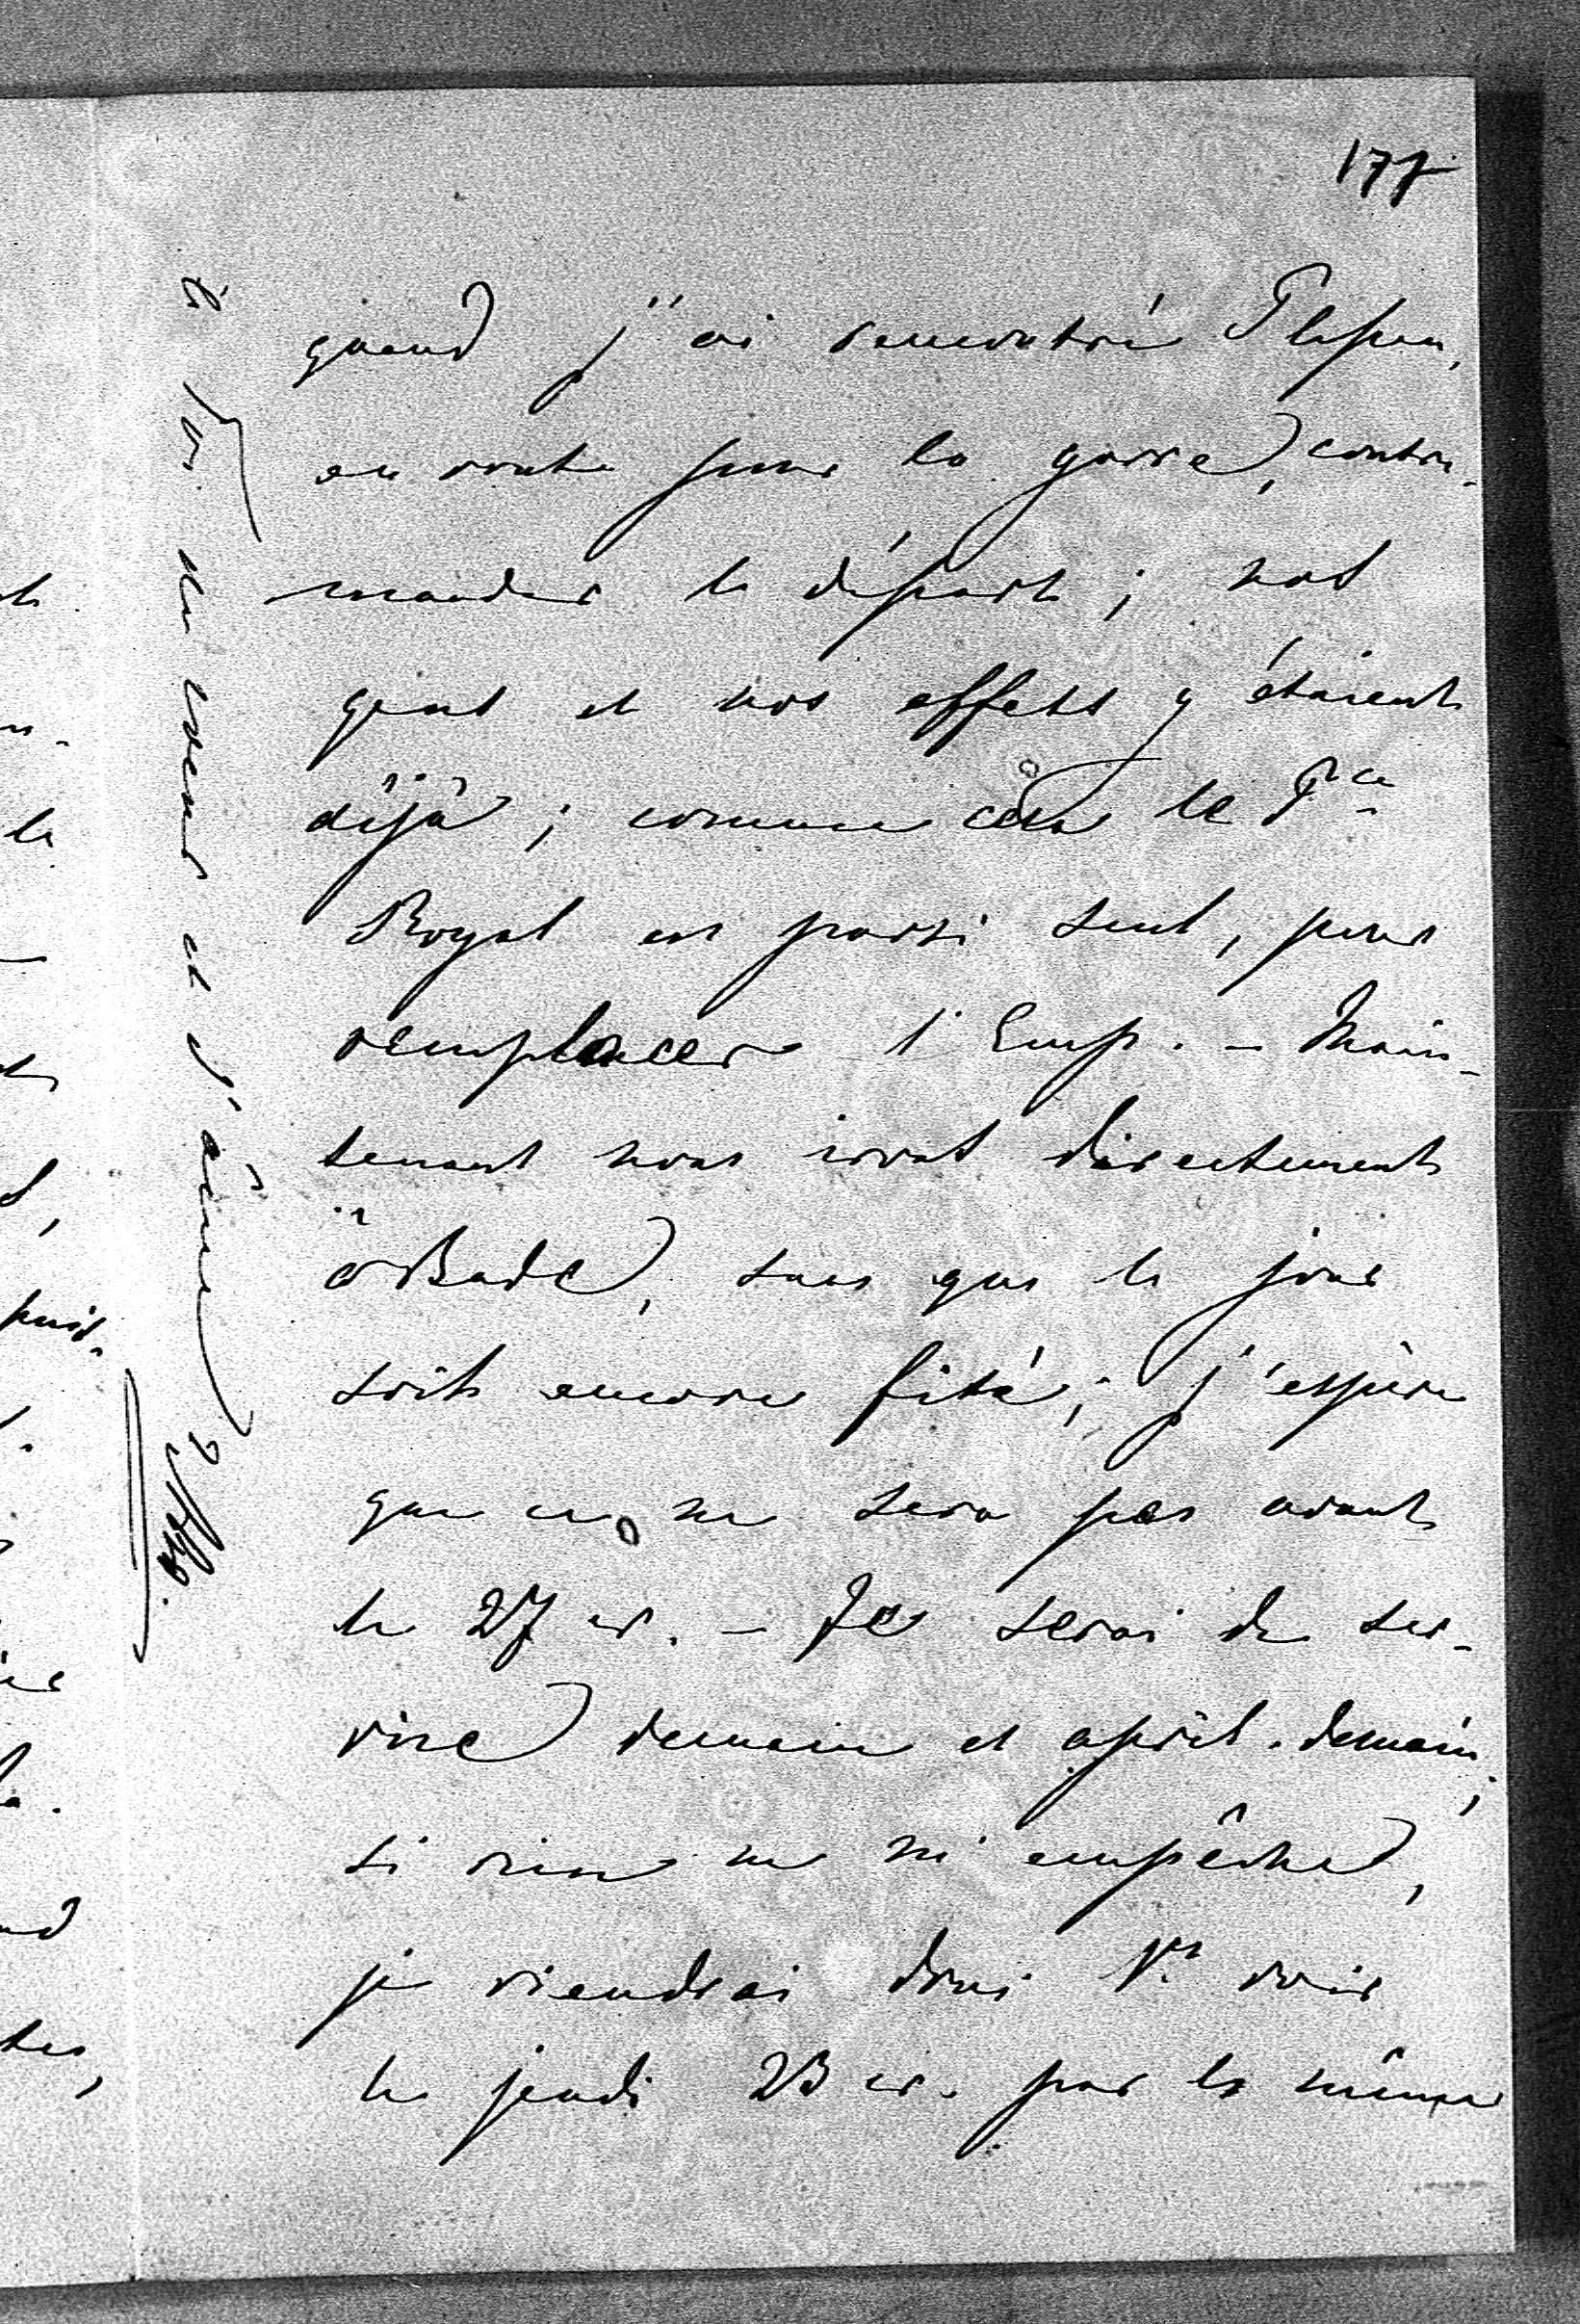 177
quand j'ai rencontré Plessen,
en route pour la garre, contre-
mander le départ; nos
gens et nos effets y étaient
déjà; comme cela le P.ce
Royal est parti seul, pour
remplacer l'Emp. - Main-
tenant nous irons directement
à Bade, sans que le jour
soit encore fixé; j'espère
que ce ne sera pas avant
le 27 cr. - Je serai de ser-
vice demain et après-demain;
si rien ne m'empêche,
je viendrai donc V.s voir
le jeudi 23 cr. par le même